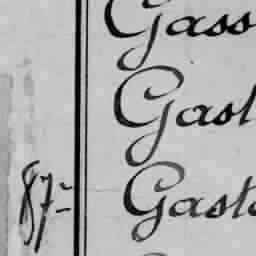 Gass
Gast
87 Gasto